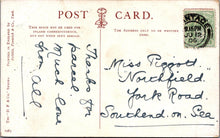 POST CARD.
THIS SPACE MAY BE USED FOR
INLAND CORRESPONDENCE,
THE ADDRESS ONLY TO BE WRITTEN
HERE.
Thanks for
parcel.
Much love
from all
Miss Piggott
Northfield
York Road
Southend on Sea